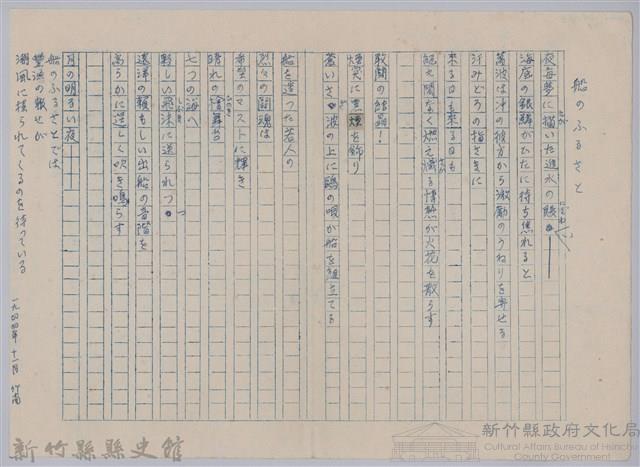 船のふるさと
夜毎夢に描いた進水の
海底の銀鱗がひたに待ち焦れると
蒼波は沖の彼方から激励のうねりを寄せる
汗みどろの描さきに
来る日も来る日も
絶え間なく燃え熾る情熱が火花を散らす
敢闘の結晶！
煙突に黒煙を飾り
蒼いさ波の上に鴎の唄が船を組立てる
船を造つた若人の
烈々の闘魂は
希望のマストに輝き
晴れの檜舞台
七つの海へ
軽しい飛沫に送られつゝ
遠洋の頼もしい出船の音階を
高らかに逞しく吹き鳴らす
月の明るい夜――
船のふるさとでは
豊漁の報せが
潮風に搖られてくるのを待つている
一九四四年 十一月 竹南
新竹縣縣史館
新竹縣政府文化局
Cultural Affairs Bureau of Hsinchu
County Government